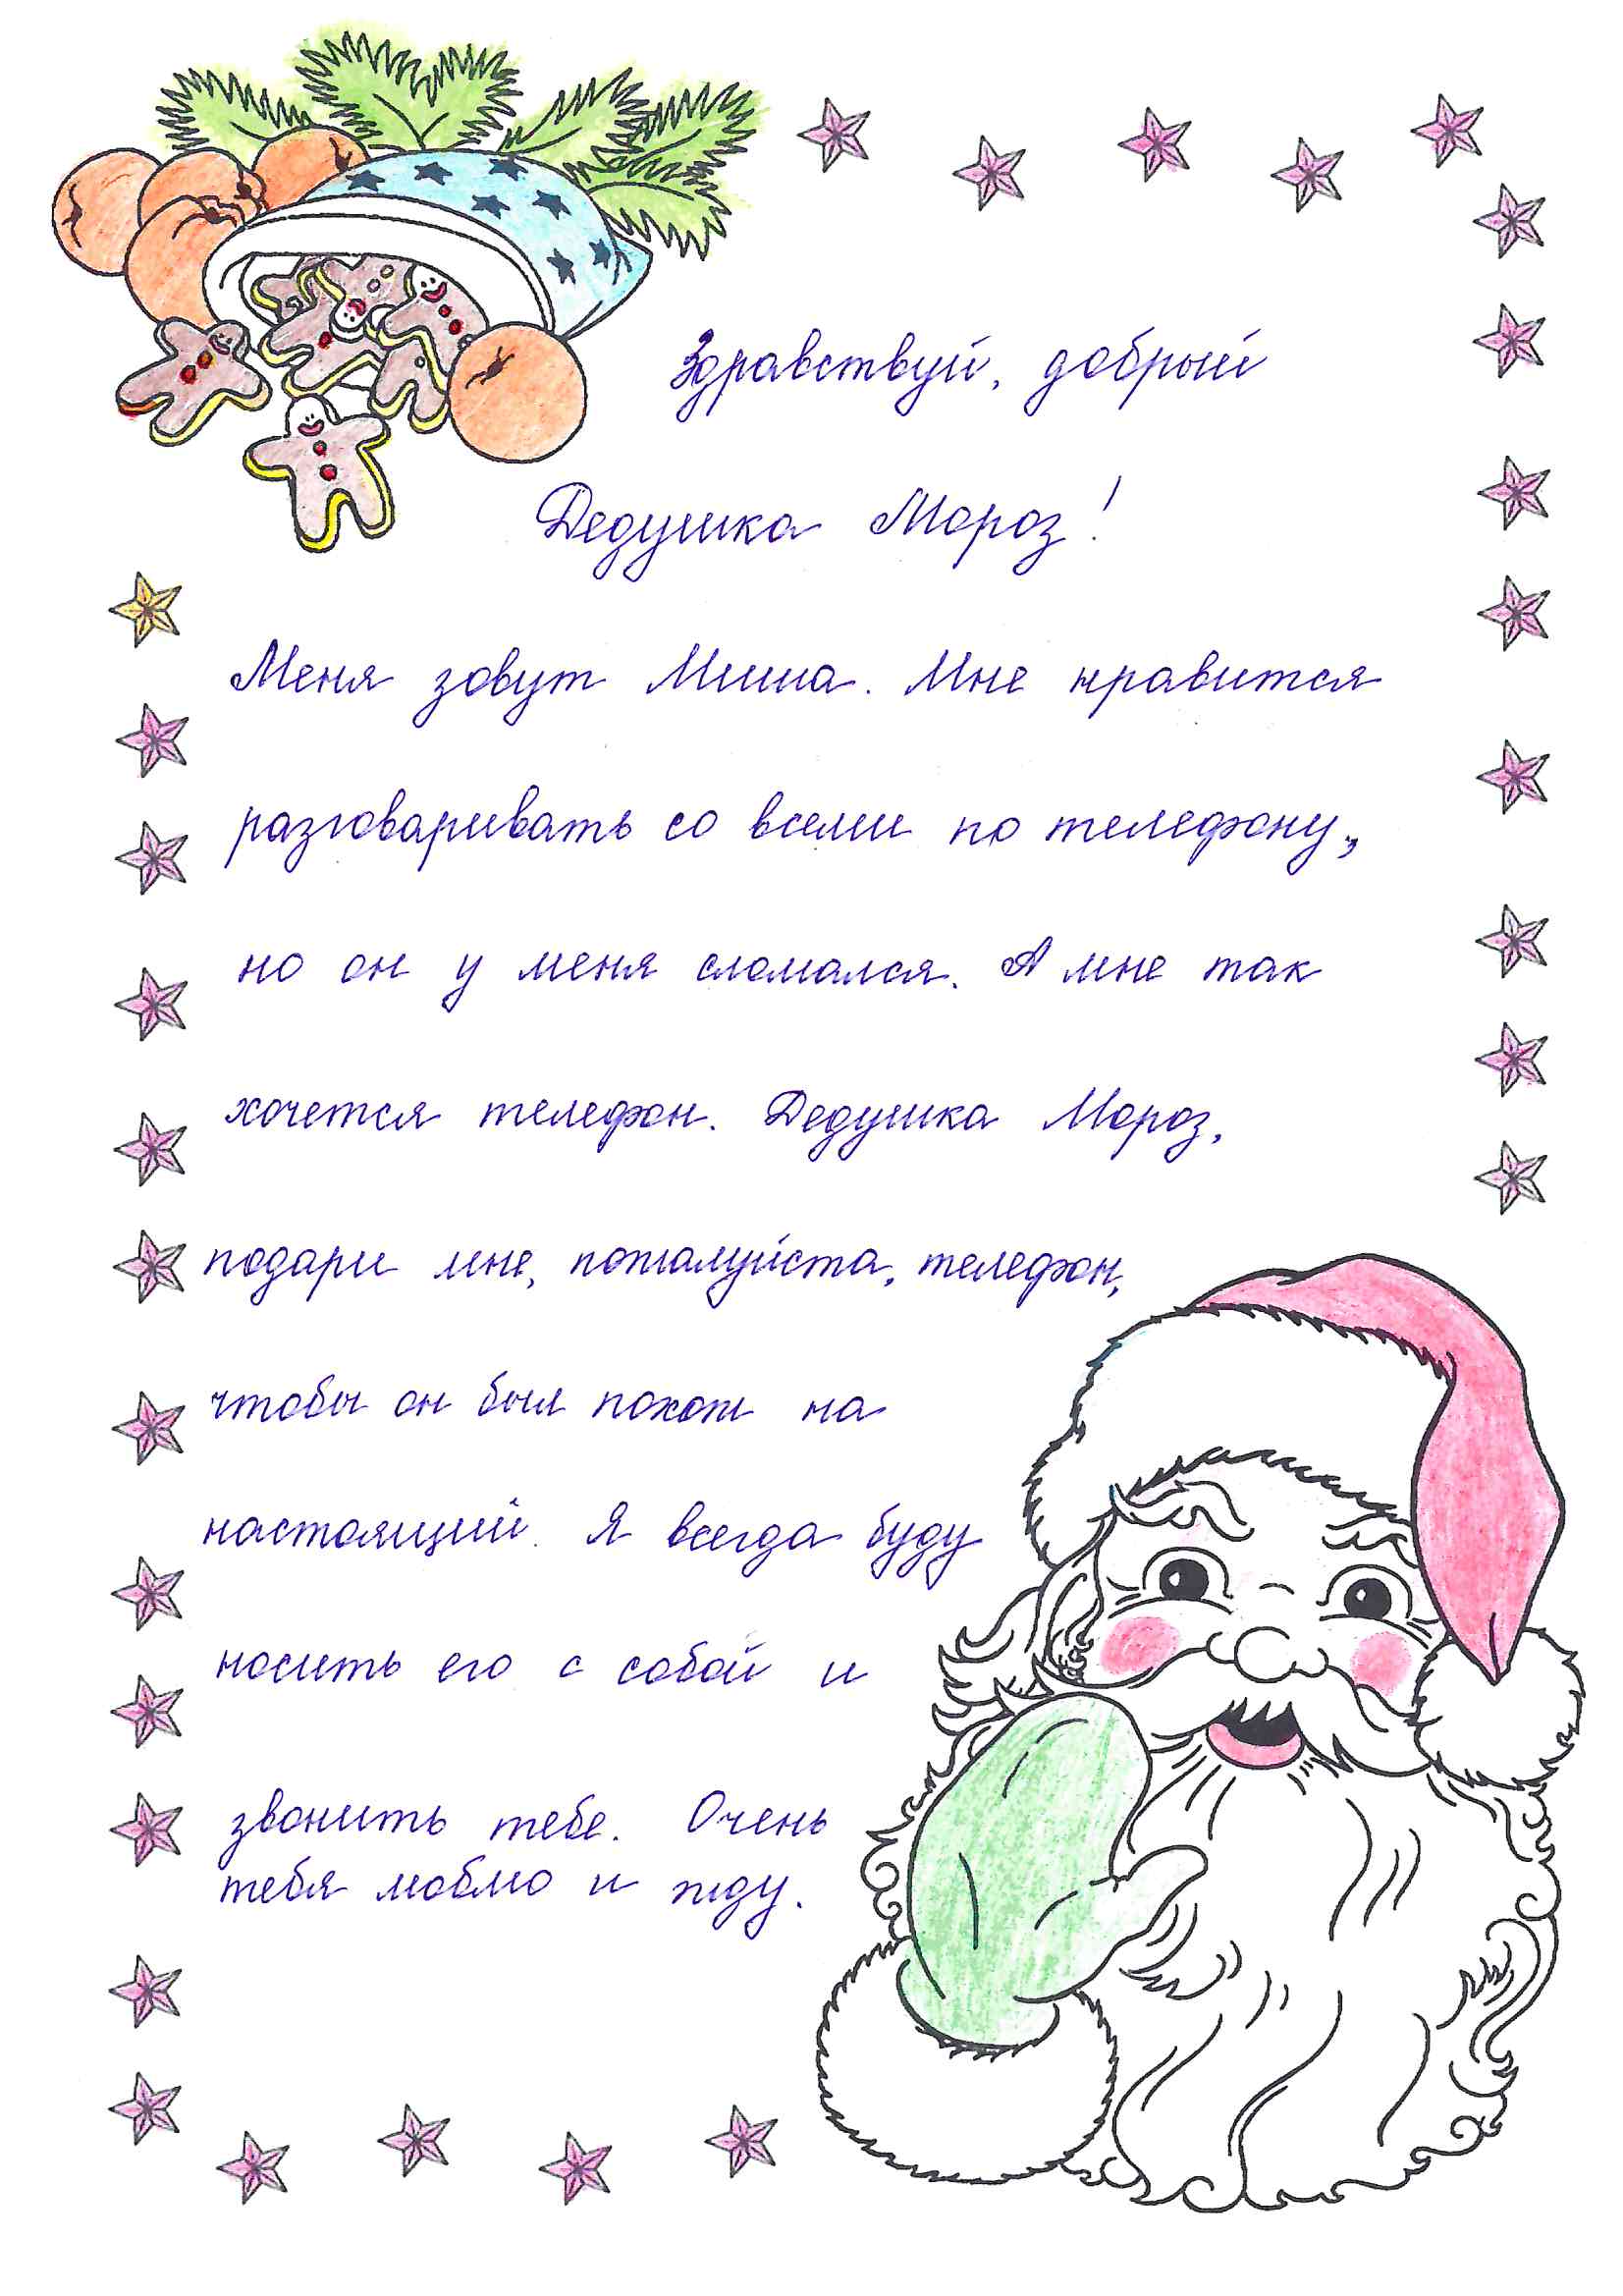 Здравствуй, добрый
Дедушка Мороз!
Меня зовут Миша. Мне нравится
разговаривать со всеми по телефону,
но он у меня сломался. А мне так
хочется телефон. Дедушка Мороз,
подари мне, пожалуйста, телефон,
чтобы он был похож на
настоящий. Я всегда буду
носить его с собой и
звонить тебе. Очень
тебя люблю и жду.